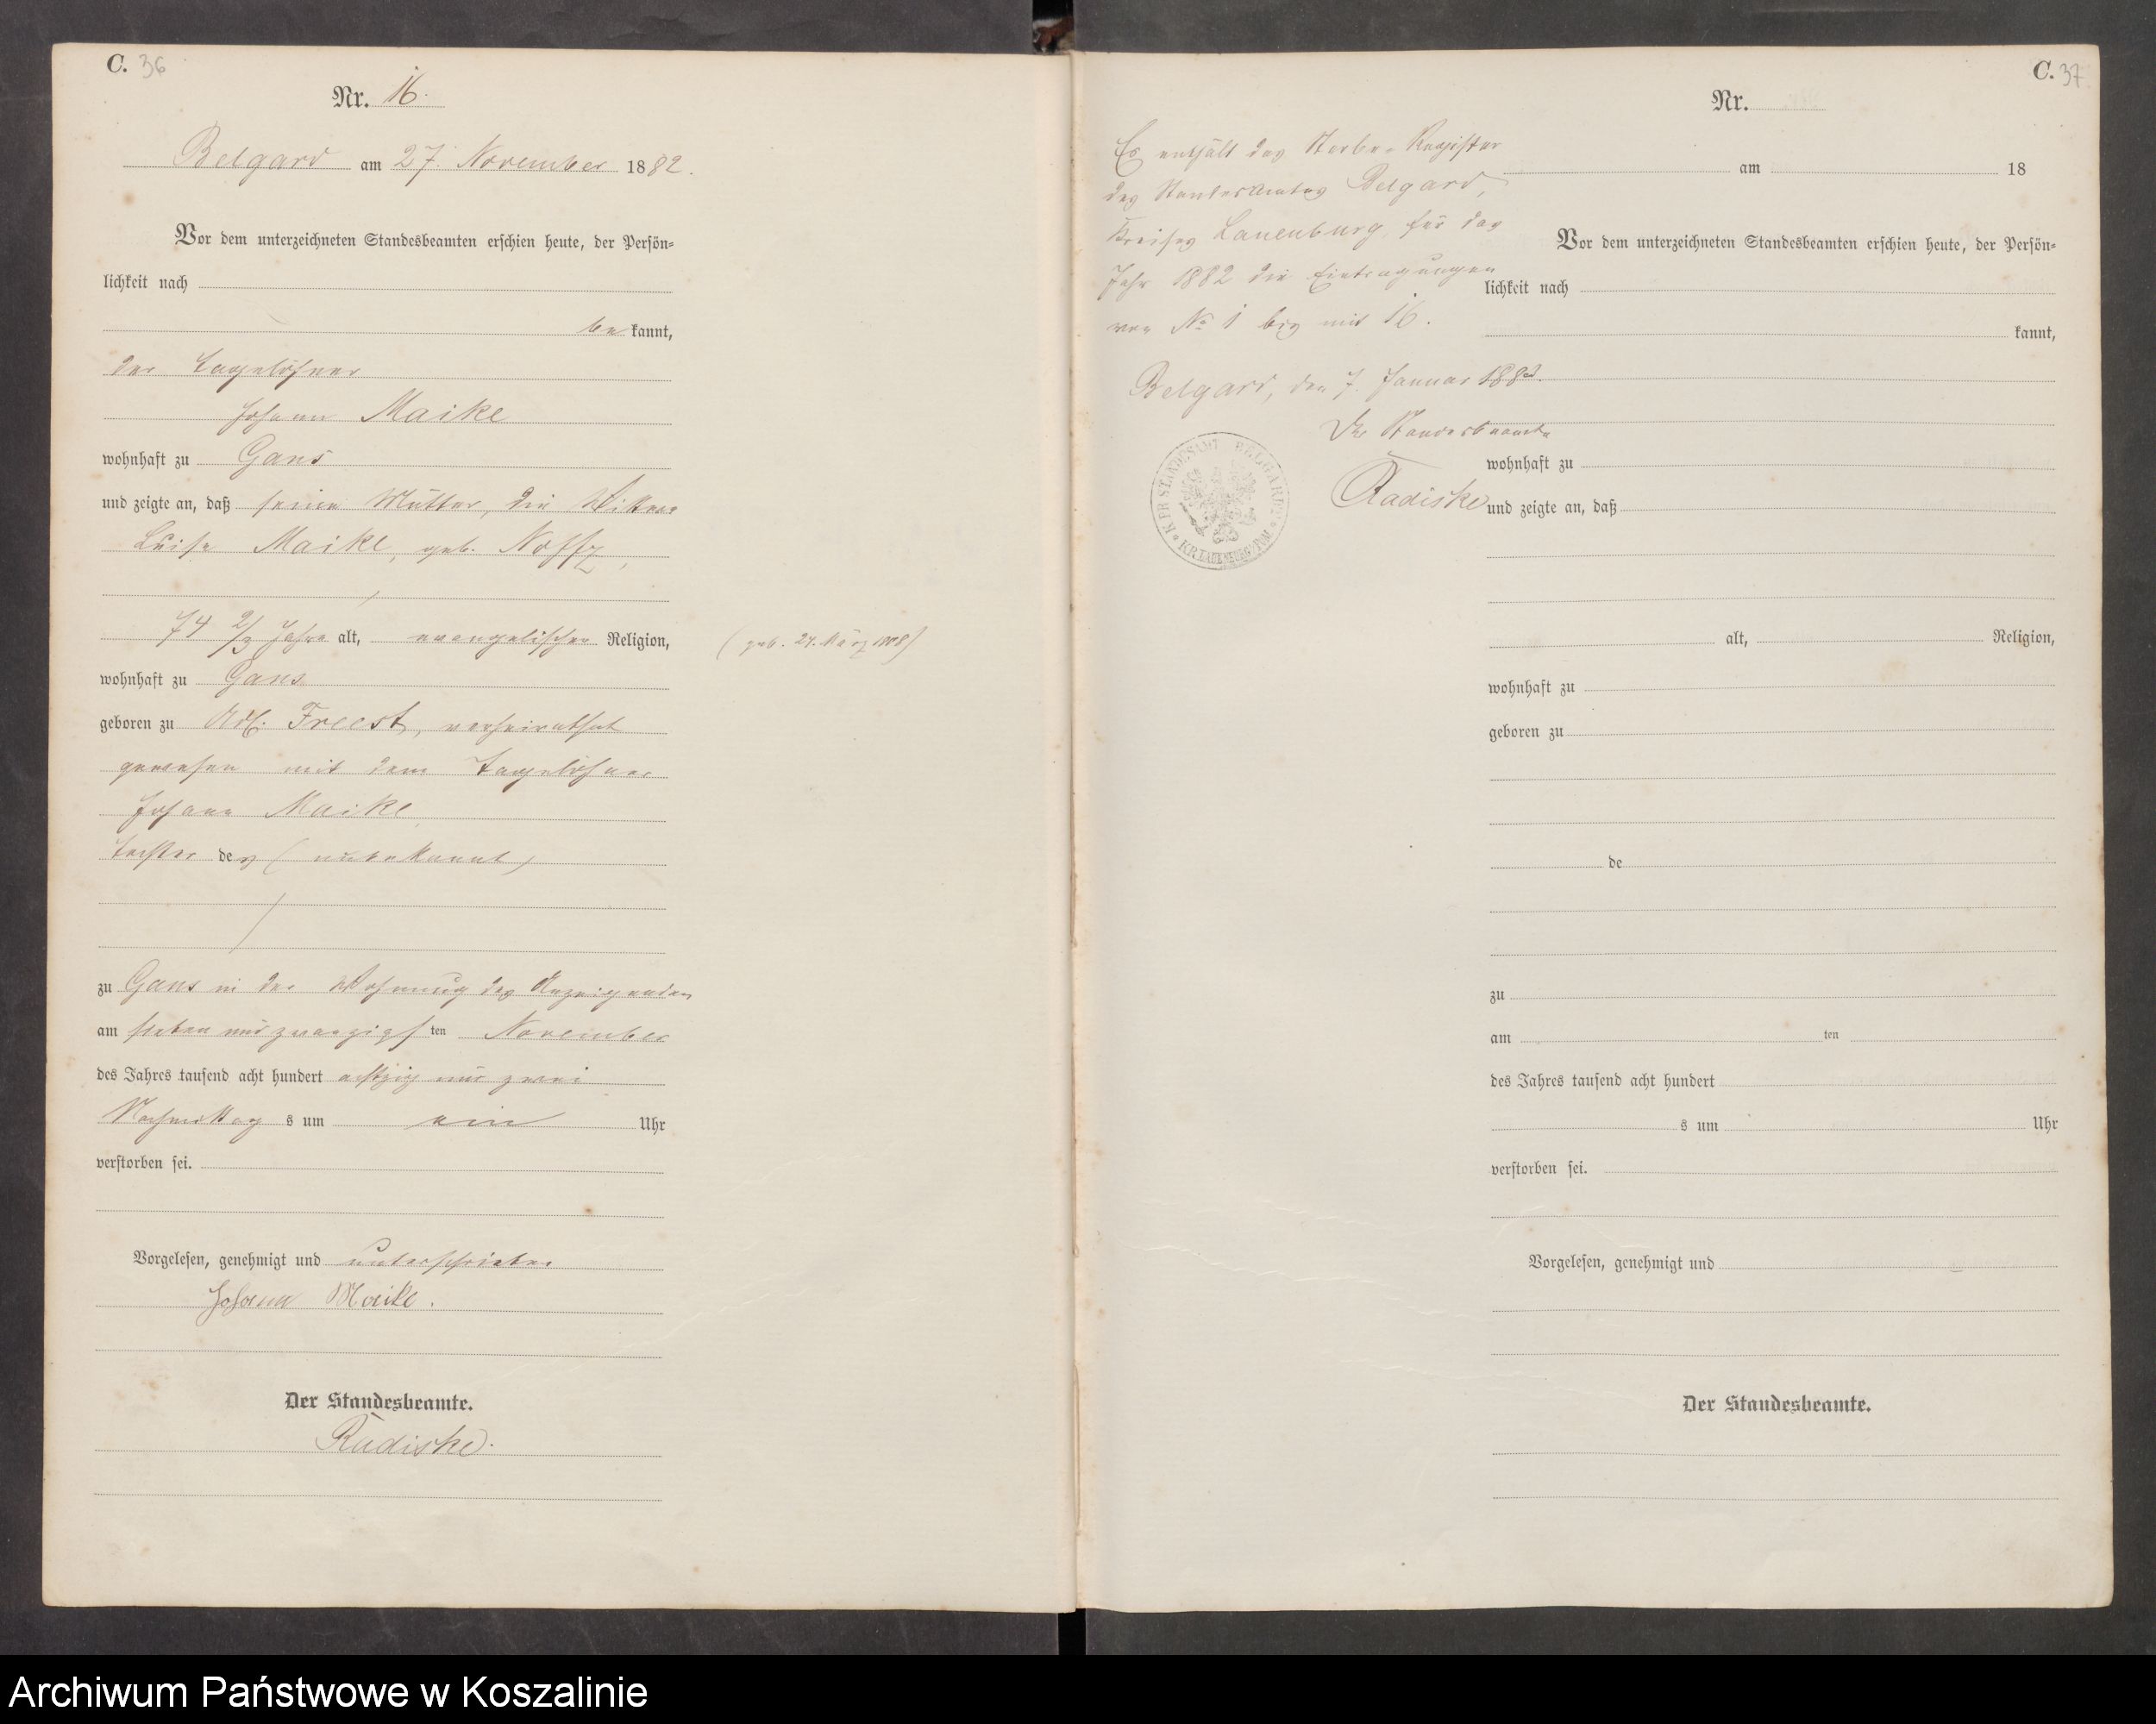 C. 36
Nr. 16.
Belgard am 27. November 1882.
Vor dem unterzeichneten Standesbeamten erschien heute, der Persön-
lichkeit nach
bekannt,
der Tagelöhner
Johann Maike
wohnhaft zu Gans
und zeigte an, daß seine Mutter, die Wittwe
Luise Maike, geb. Noffz,
74 2/3 Jahre alt, evangelischer Religion,
(geb. 27. März 1808)
wohnhaft zu Gans
geboren zu Adl. Freest, verheirathet
gewesen mit dem Tagelöhner
Johann Maike
Tochter des (unbekannt)
zu Gans in der Wohnung des Anzeigenden
am sieben und zwanzigsten November
des Jahres tausend acht hundert achtzig und zwei
Nachmittags um ein Uhr
verstorben sei.
Vorgelesen, genehmigt und unterschrieben
Johann Maike.
Der Standesbeamte.
Radiske.
C. 37
Nr.
Es enthält das Sterbe-Register
des Standesamtes Belgard,
Kreises Lauenburg, für das
Jahr 1882 die Eintragungen
von No 1 bis mit 16.
Belgard, den 7. Januar 1883.
Der Standesbeamte
Radiske
K. PR. STANDESAMT BELGARD
KR. LAUENBURG i/POM.
am 18
Vor dem unterzeichneten Standesbeamten erschien heute, der Persön-
lichkeit nach
kannt,
wohnhaft zu
und zeigte an, daß
alt, Religion,
wohnhaft zu
geboren zu
de
zu
am ten
des Jahres tausend acht hundert
s um Uhr
verstorben sei.
Vorgelesen, genehmigt und
Der Standesbeamte.
Archiwum Państwowe w Koszalinie